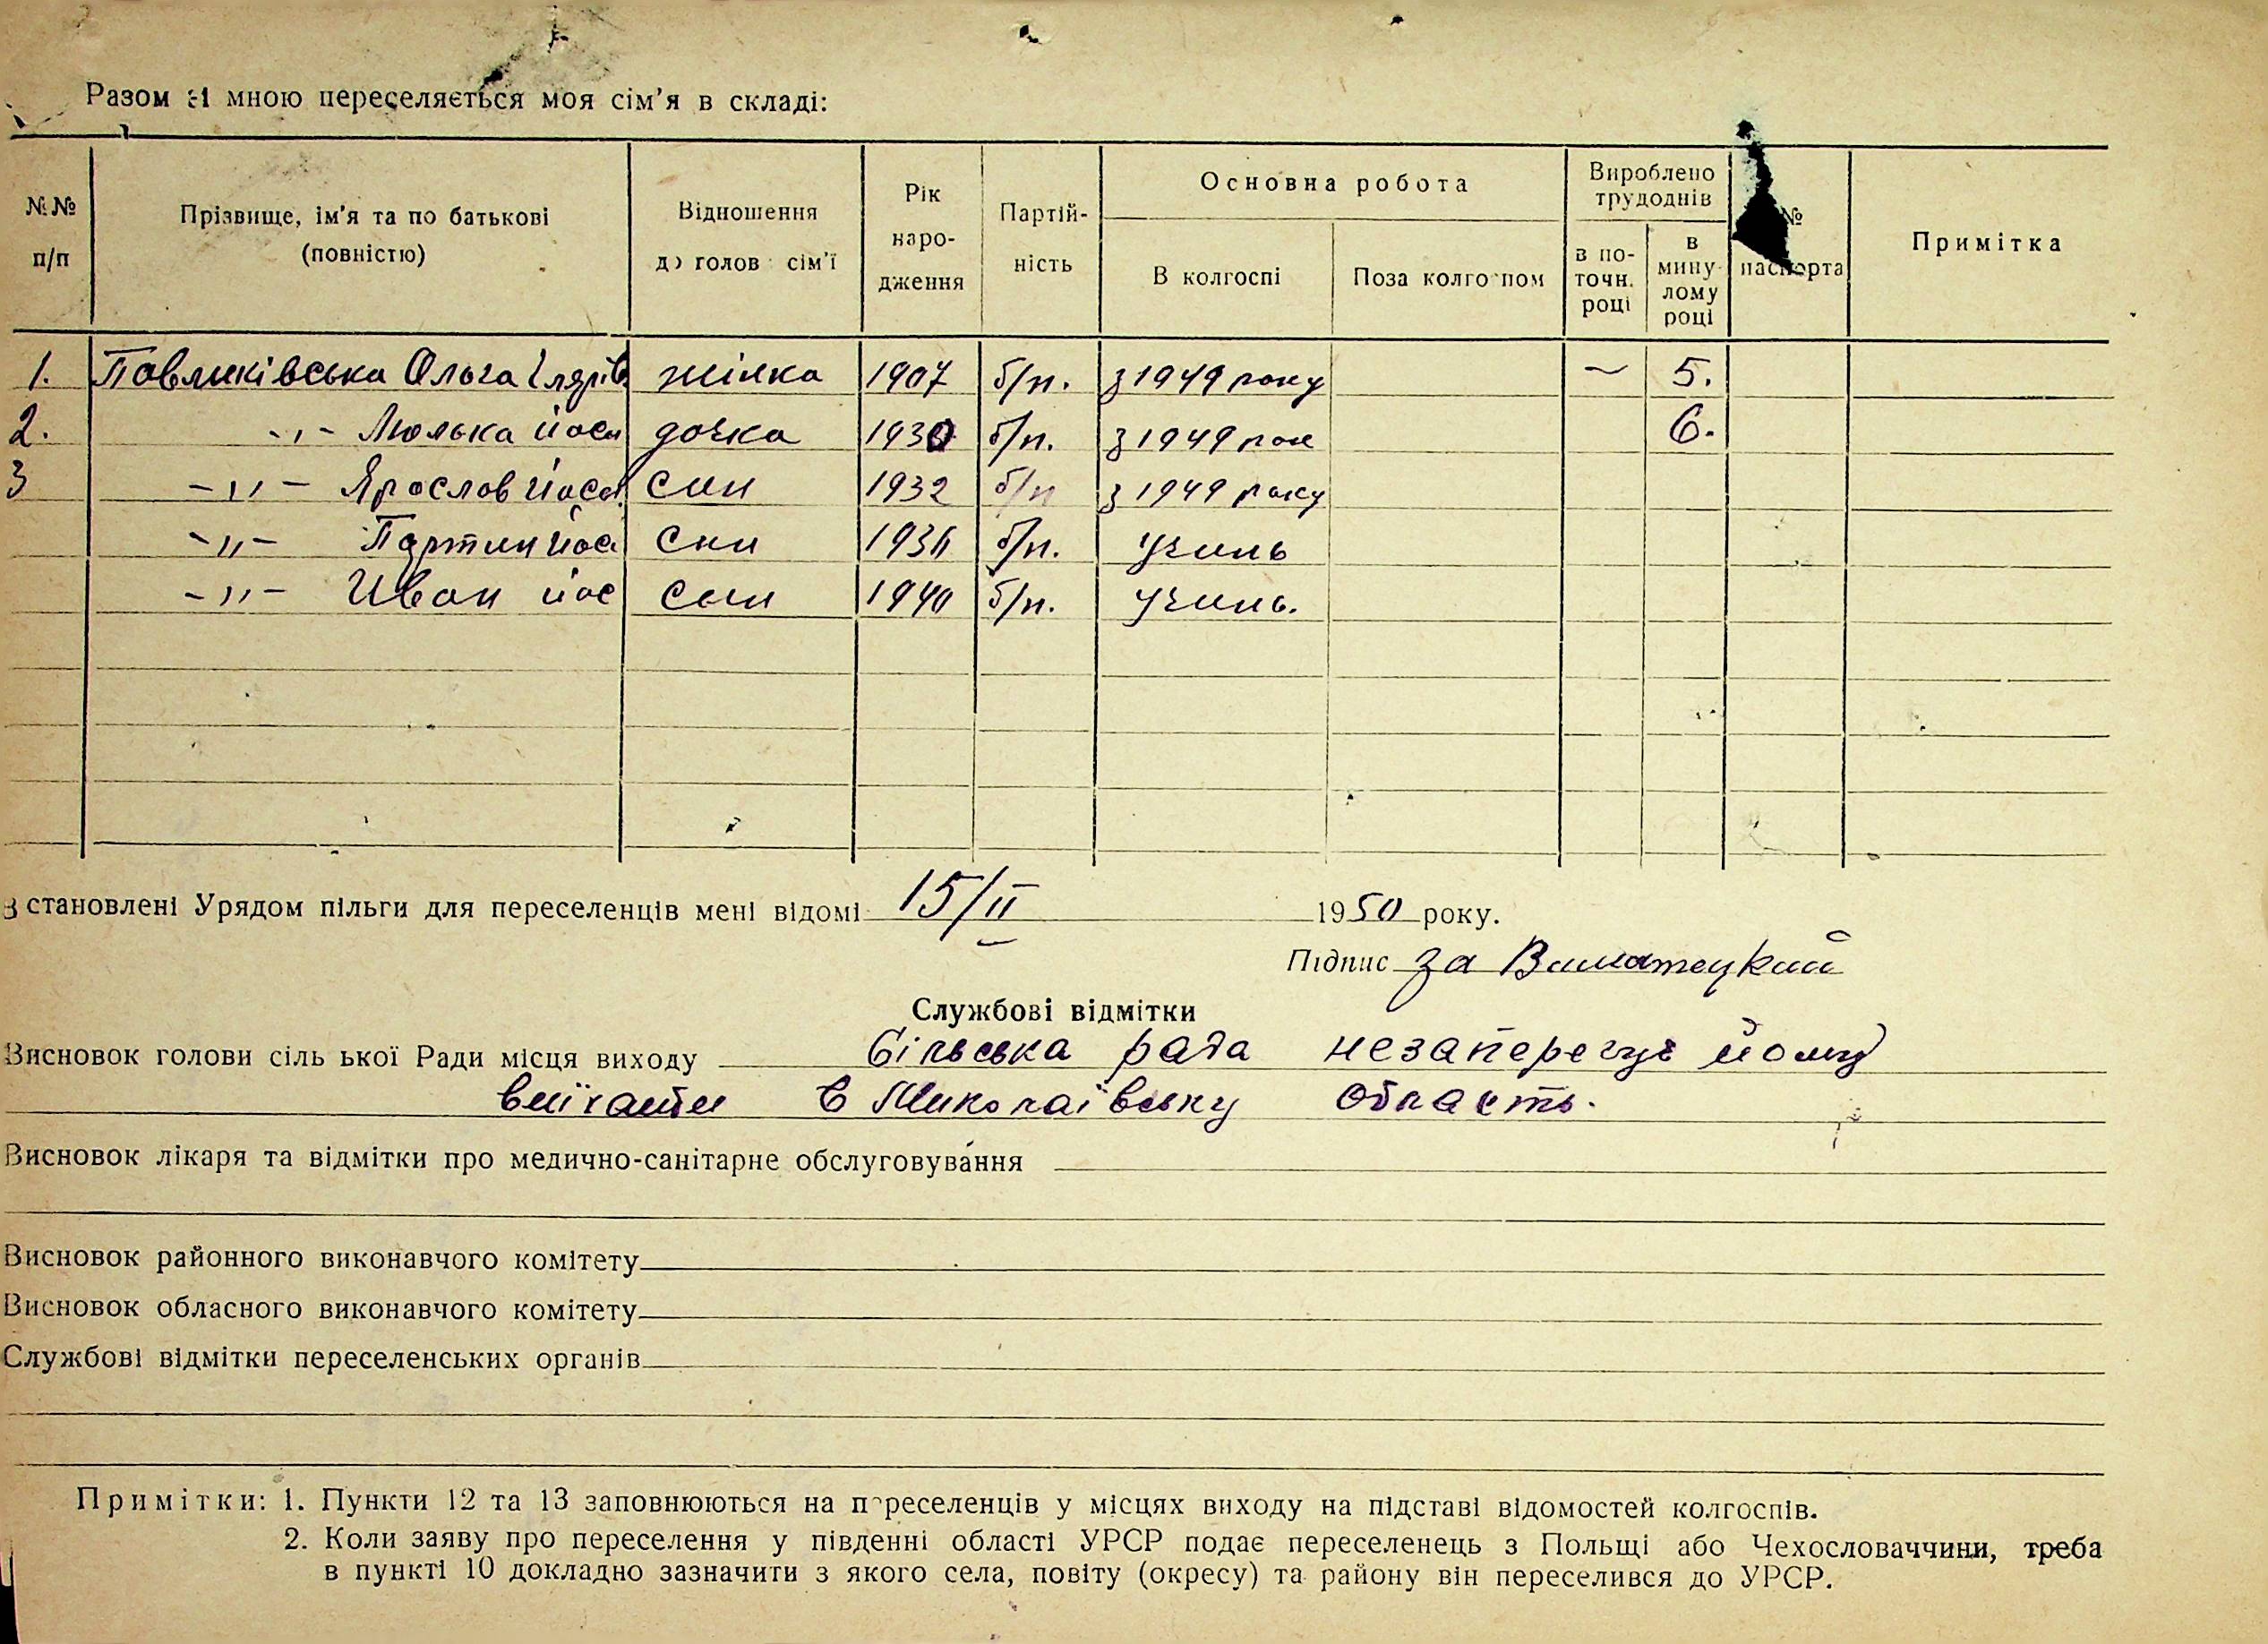 Разом зі мною переселяється моя сім'я в складі:
№№ п/п
Прізвище, ім'я та по батькові (повністю)
Відношення до голов сім'ї
Рік народження
Партій-ність
Основна робота
В колгоспі
Поза колгоспом
Вироблено трудоднів
в по-точн. році
в мину-лому році
№ паспорта
Примітка
1. Павликівська Ольга Ілярів жінка 1907 б/п. з 1949 року ~ 5.
2. -,,- Люлька йоси дочка 1930 б/п. з 1949 рок 6.
3 -,,- Ярослав йоси син 1932 б/п з 1949 року
-,,- йос син б/п. учень
-,,- Иван йос син 1940 б/п. учень.
Встановлені Урядом пільги для переселенців мені відомі 15/II 1950 року.
Підпис за
Службові відмітки
Висновок голови сільської Ради місця виходу Сільська рада незаперечує йому
виїхати в Миколаївську область.
Висновок лікаря та відмітки про медично-санітарне обслуговування
Висновок районного виконавчого комітету
Висновок обласного виконавчого комітету
Службові відмітки переселенських органів
Примітки: 1. Пункти 12 та 13 заповнюються на переселенців у місцях виходу на підставі відомостей колгоспів.
2. Коли заяву про переселення у південні області УРСР подає переселенець з Польщі або Чехословаччини, треба
в пункті 10 докладно зазначити з якого села, повіту (окресу) та району він переселився до УРСР.